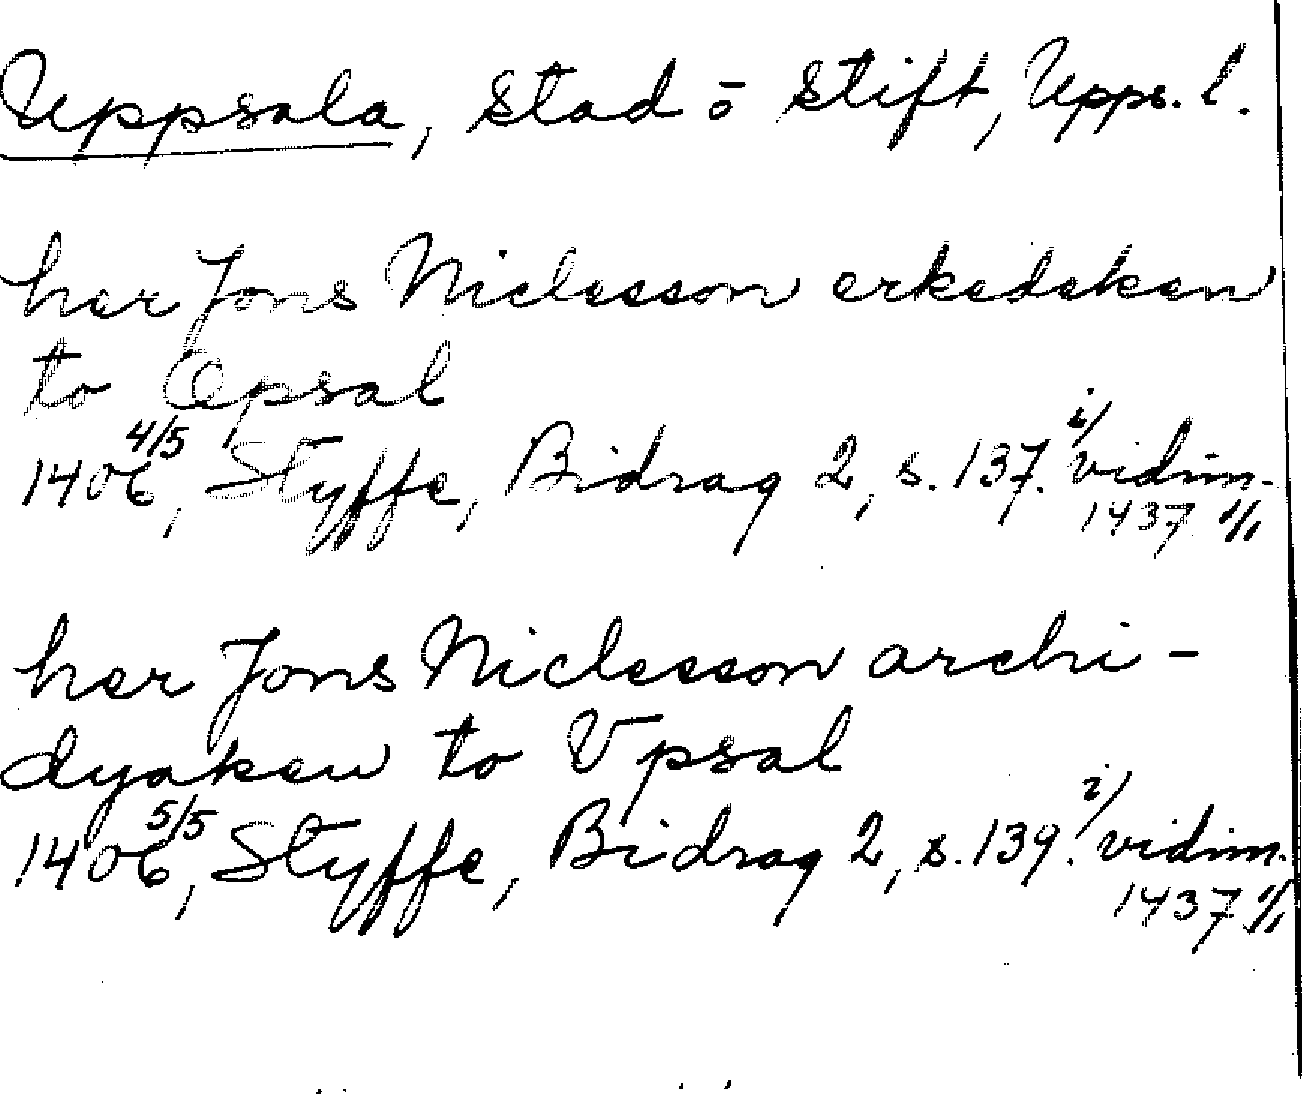 Uppsala, stad o stift, Upps. l.
her Jons Niclesson erkedeken
to Opsal
1406 4/5, Styffe, Bidrag 2, s. 137. i/ vidim.
1437 1/1
her Jons Niclesson archi-
dyaken to Vpsal
1406 5/5, Styffe, Bidrag 2, s. 139. i/ vidim.
1437 1/1